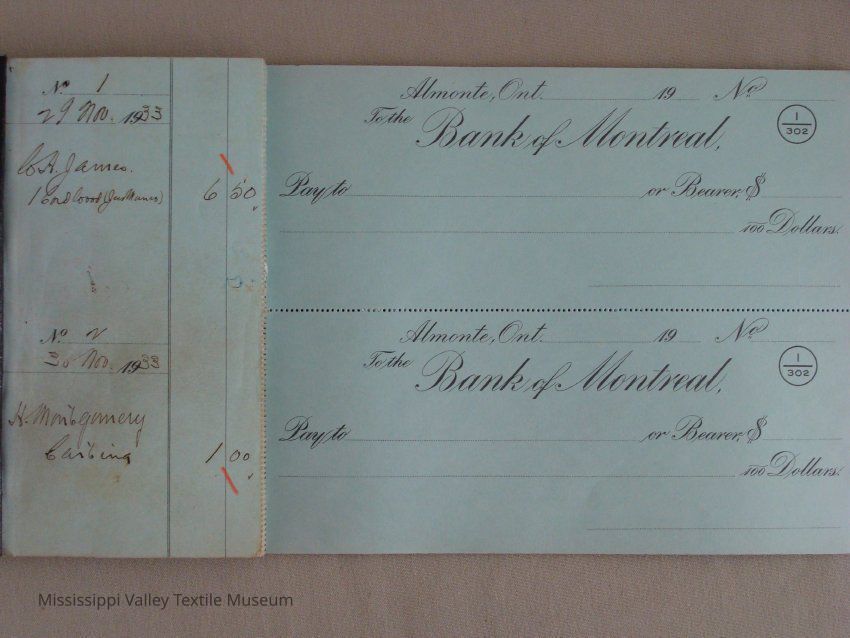 No 1
29 Nov. 1933
James.
6 50
No 2
30 Nov. 1933
H. Montgomery
Carting 1 00
Almonte, Ont. 19 No
To the
Bank of Montreal,
1
302
Pay to or Bearer, $
100 Dollars.
Almonte, Ont. 19 No
To the
Bank of Montreal,
1
302
Pay to or Bearer, $
100 Dollars.
Mississippi Valley Textile Museum